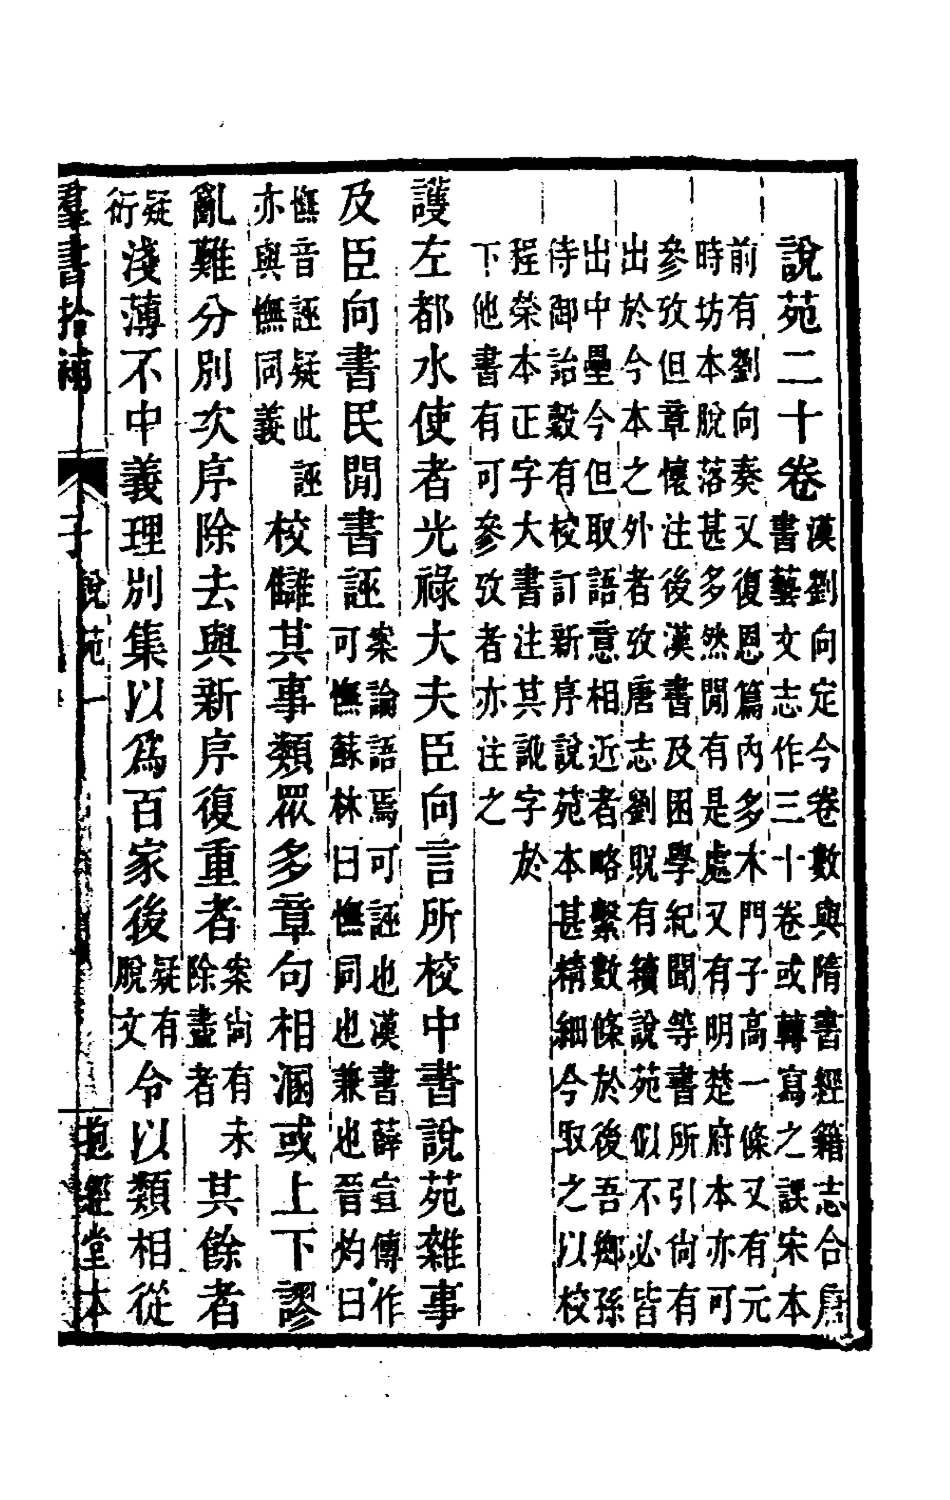 說苑二十卷
漢劉向定今卷數與隋書經籍志合唐
書藝文志作三十卷或轉寫之誤宋本
前有劉向奏又復恩篇內多木門子高一條又有元
時坊本脫落甚多然閒有是處又有明楚府本亦可
參攷但章懷注後漢書及困學紀聞等書所引尚有
出於今本之外者攷唐志劉貺有續說苑似不必皆
出中壘今但取語意相近者略繫數條於後吾鄉孫
侍御詒穀有校訂新序說苑本甚精細今取之以校
程榮本正字大書注其訛字於
下他書有可參攷者亦注之
護左都水使者光祿大夫臣向言所校中書說苑雜事
及臣向書民閒書誣
案論語焉可誣也漢書薛宣傳作
可憮蘇林曰憮同也兼也晉灼曰
憮音誣疑此誣
亦與憮同義
校讎其事類眾多章句相溷或上下謬
亂難分別次序除去與新序復重者
案尚有未
除盡者
其餘者
疑
衍
淺薄不中義理別集以爲百家後
疑有
脫文
令以類相從
羣書拾補
子
說苑一
抱經堂本